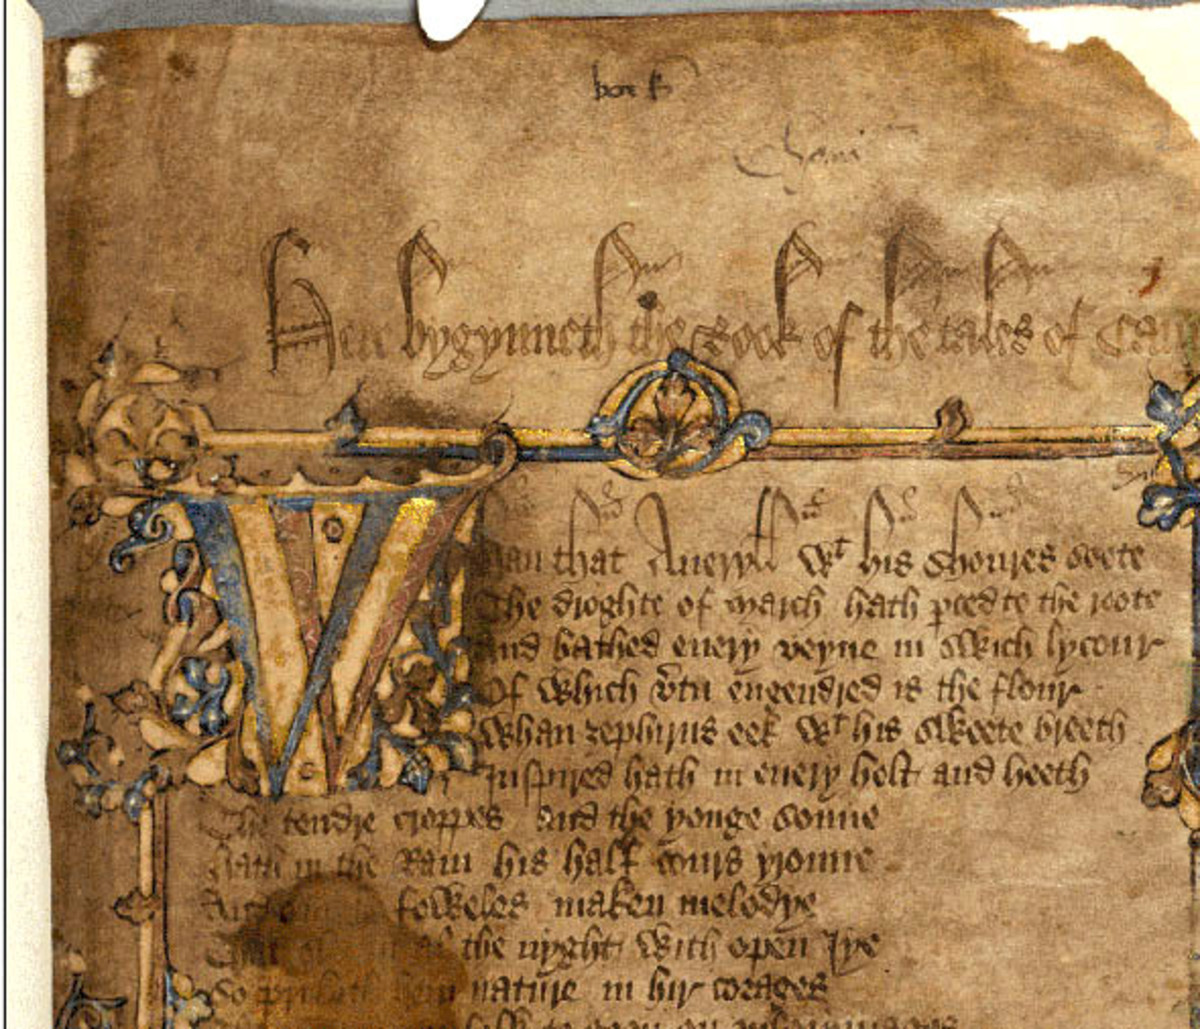 Here bygynneth the Book of the tales of Cau
Whan that Aueryłł wt his shoures soote
The droghte of March hath pced to the roote
And bathed euery veyne in swich lycour
Of which vtu engendred is the flour
Whan zephirus eek wt his sweete breeth
Inspired hath in euery holt and heeth
The tendre croppes and the yonge sonne
hath in the Ram his half cours yronne
And foweles maken melodye
That the nyght with open Iye
So priketh hem nature in hir corages
to goon on pilgrimages